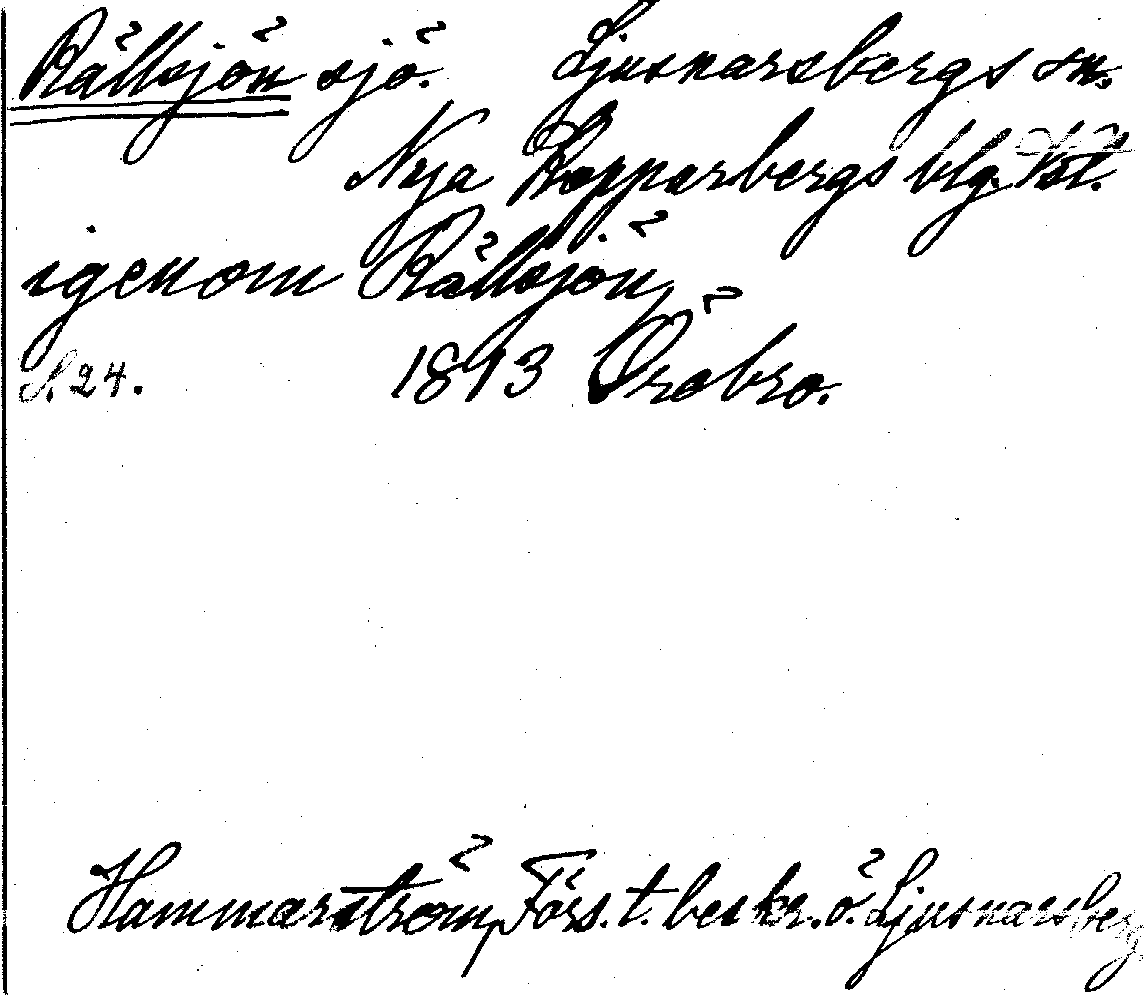 Rällsjön sjö. Ljusnarsbergs sn.
Nya Kopparbergs blg. Vst.
igenom Rällsjön,
S. 24. 1893 Örebro.
Hammarström, Förs. t. beskr. ö. Ljusnarsberg